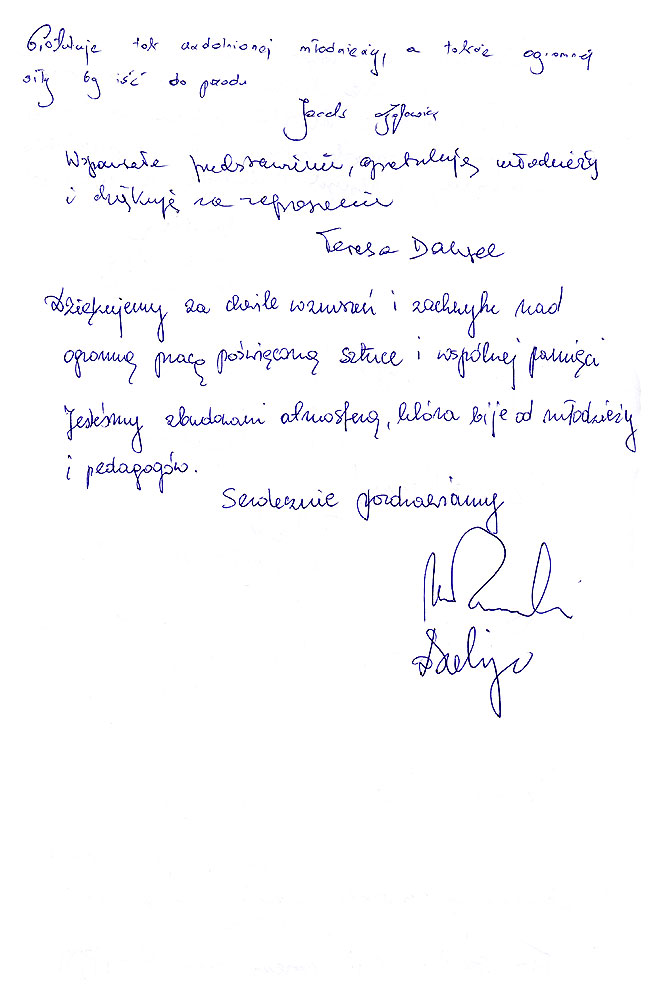 Gratuluję tak uzdolnionej młodzieży, a także ogromnej
siły by iść do przodu
Jacek
Wspaniałe przedstawienie, gratuluję młodzieży
i dziękuję za zaproszenie
Teresa
Dziękujemy za chwile wzruszeń i zachwytu nad
ogromną pracą poświęconą sztuce i wspólnej pamięci
Jesteśmy zbudowani atmosferą, która bije od młodzieży
i pedagogów.
Serdecznie pozdrawiamy